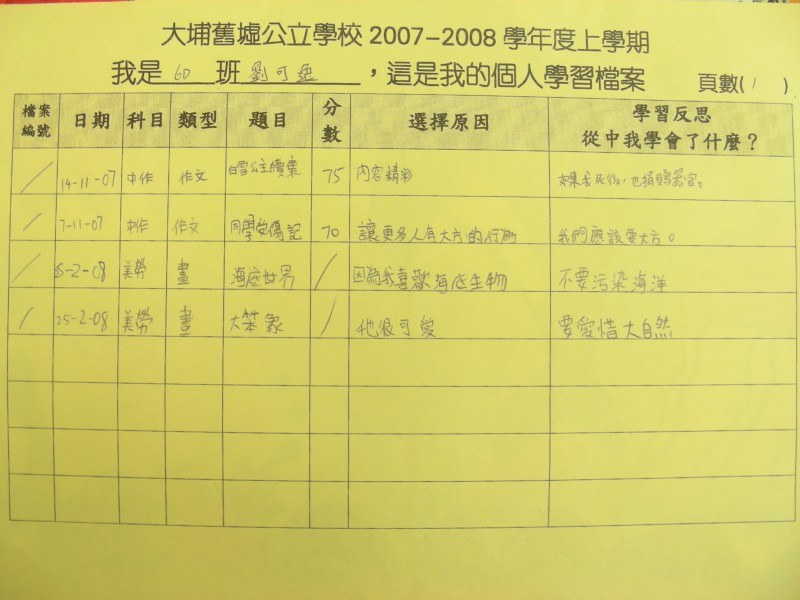 大埔舊墟公立學校 2007-2008 學年度上學期
我是 6D 班 劉可 ，這是我的個人學習檔案 頁數( 1 )
檔案編號 日期 科目 類型 題目 分數 選擇原因 學習反思 從中我學會了什麼？
/ 14-11-07 中作 作文 白雪公主續集 75 內容精彩 如果我死後，也捐贈器官。
/ 7-11-07 中作 作文 同學受傷記 70 讓更多人有大方的行為 我們應該要大方。
/ 5-2-08 美勞 畫 海底世界 / 因為我喜歡海底生物 不要污染海洋
/ 25-2-08 美勞 畫 大笨象 / 他很可愛 要愛惜大自然